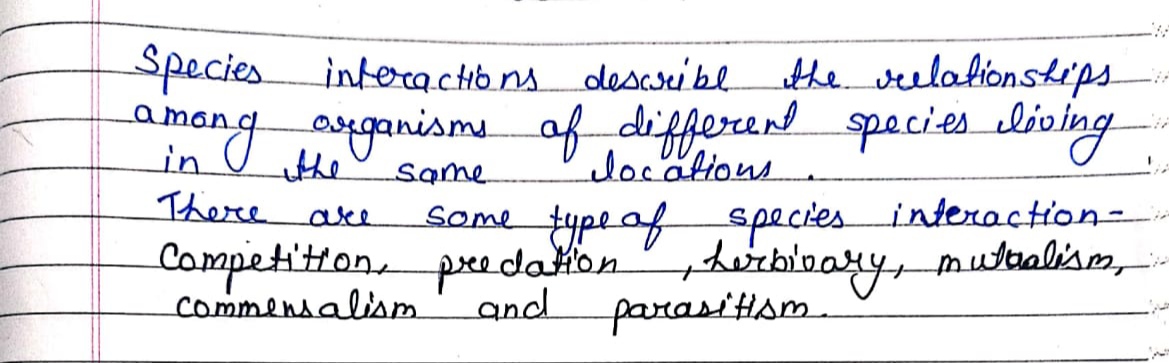 Species interactions describe the relationships
among organisms of different species living
in the same locations.
There are some type of species interaction-
Competition, predation, herbivary, mutualism,
commensalism and parasitism.